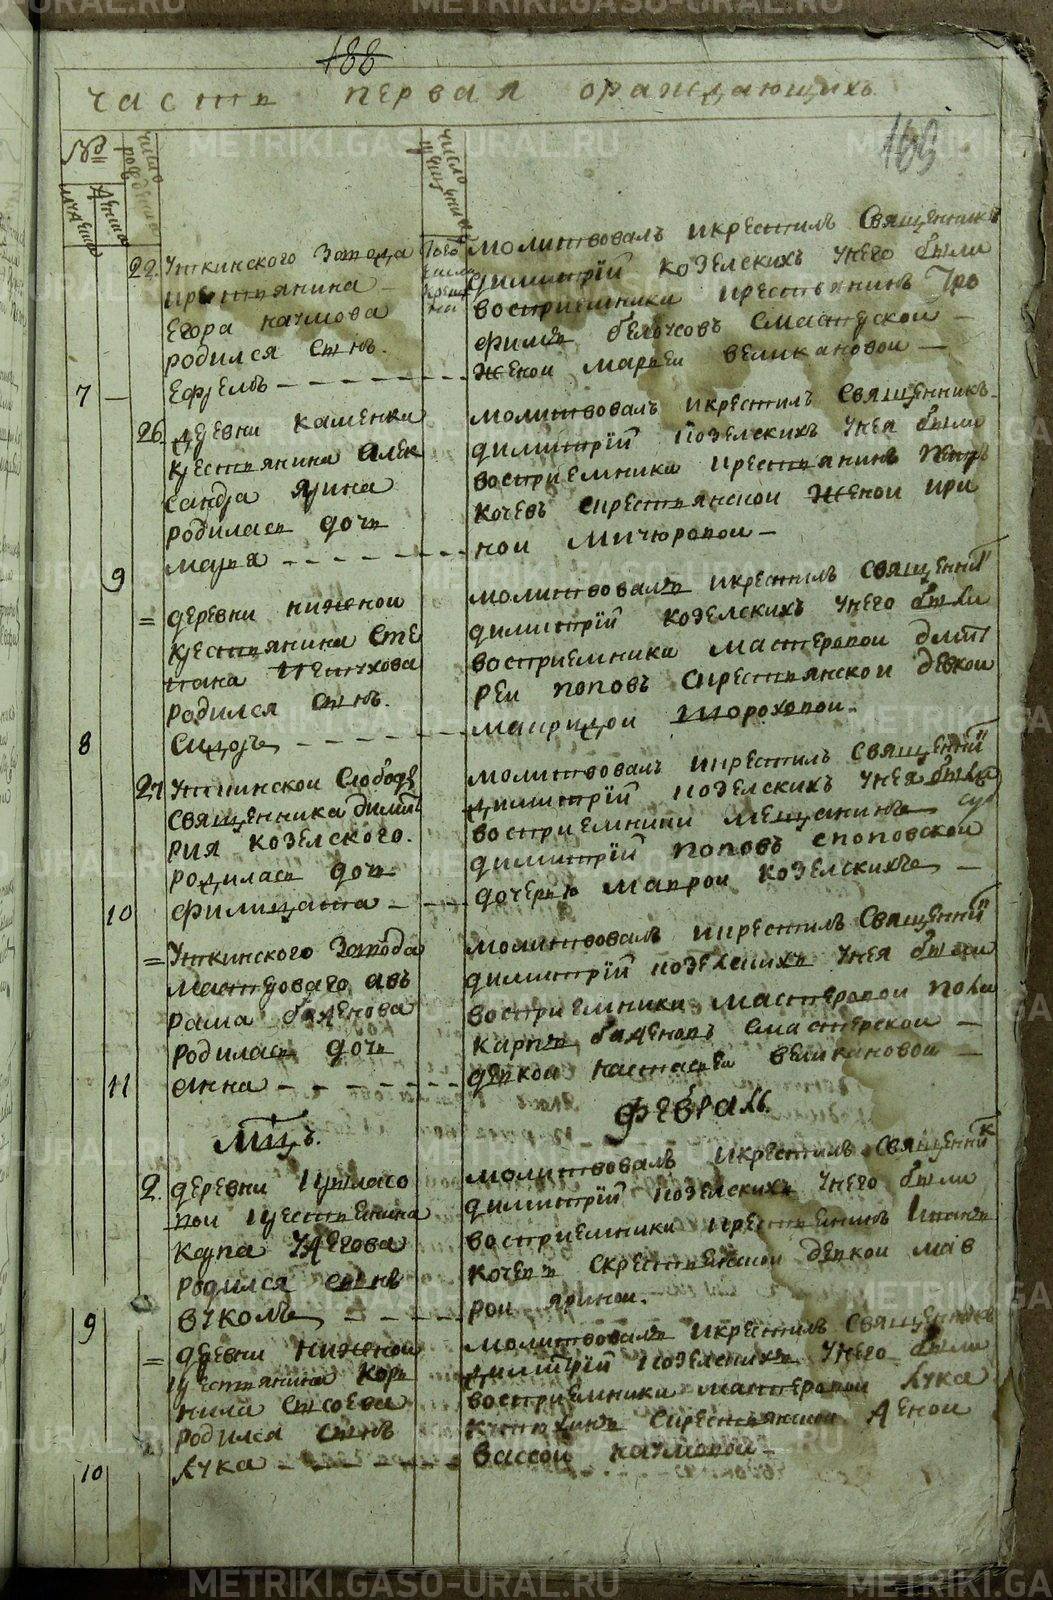 188
часть первая ораждающихъ
169
№
мужеска
женска
число рождения
число крещения
22
Уткинского завода
крестьянина
Егора наумова
родился сынъ
Ефремъ
7
Того числа крещенъ
молитвовалъ икрестилъ Священникъ
димитрїй козелскихъ унего были
восприемники крестьянинъ Тро
фимъ белоусовъ смастерской
женой марьей великановой
26
деревни каменки
крестьянина алек
сандра ярина
родилась дочь
марья
9
молитвовалъ икрестилъ священникъ
димитрїй козелскихъ унея были
восприемники крестьянинъ петръ
кочевъ скрестьянской женой ири
ной мичюровой
=
деревни нижной
крестьянина сте
пана петухова
родился сынъ
Сидоръ
8
молитвовалъ икрестилъ священни
димитрїй козелскихъ унего были
восприемники мастеровой дмит
рей поповъ скрестьянской девкой
маиридой шороховой
27
Уткинской слободы
священника димит
рия козелского
родилась дочь
филицата
10
молитвовалъ икрестилъ священни
димитрїй козелскихъ унея были
восприемники мещанинъ
димитрїй поповъ споповской
дочерью маврой козелскихъ
=
Уткинского завода
мастероваго ав
рама баженова
родилась дочь
анна
11
молитвовалъ икрестилъ Священни
димитрїй козелскихъ унея были
восприемники мастеровой поли
карпъ баженовъ смастерской
девкой настасьей великановой
мцъ.
февраль
2
деревни крыласо
вой крестьянина
карпа чдегова
родился сынъ
вуколъ
9
молитвовалъ икрестилъ священник
димитрїй козелскихъ унего были
восприемники крестьянинъ иванъ
кочевъ скрестьянской девкой мав
рой яриной
=
деревни нижной
крестьянина кор
нила сысоева
родился сынъ
лука
10
молитвовалъ икрестилъ священникъ
димитрїй козелскихъ унего были
восприемники мастеровой лука
скрестьянской женой
вассой наумовой
METRIKI.GASO-URAL.RU